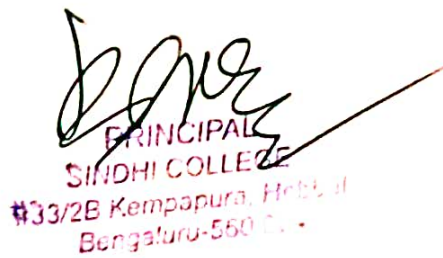 PRINCIPAL
SINDHI COLLEGE
#33/2B Kempapura, Hebbal
Bengaluru-560